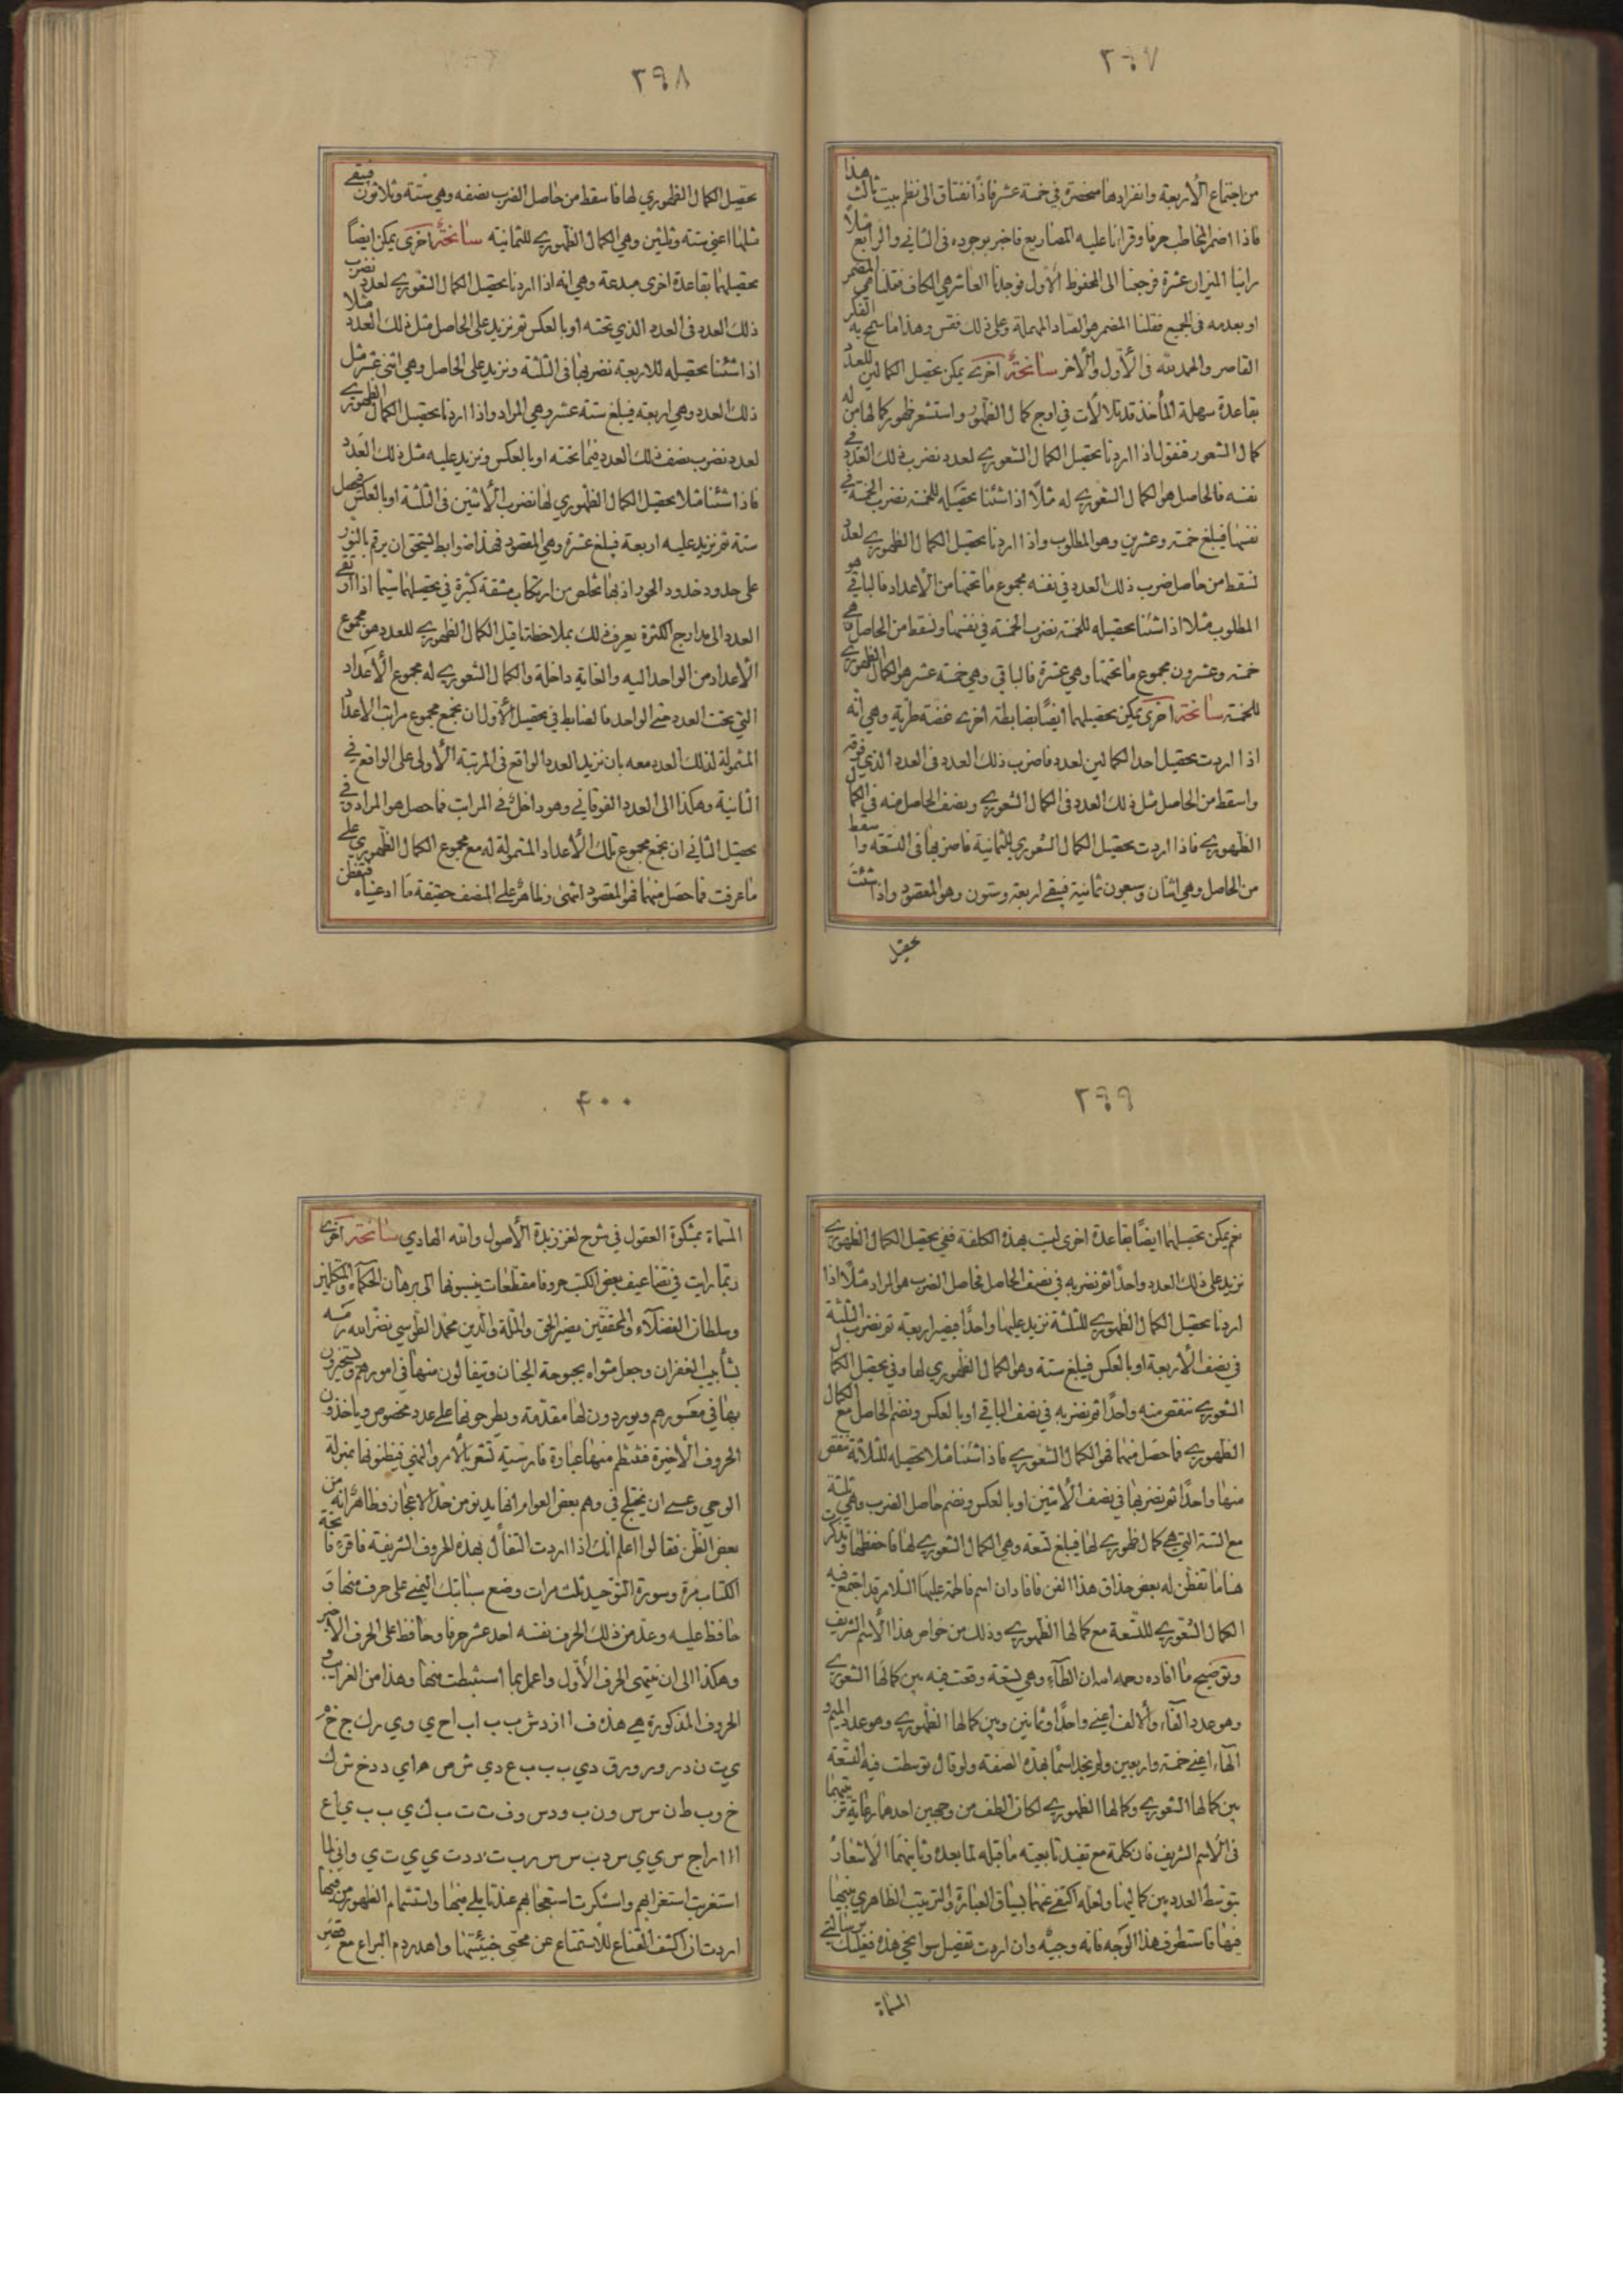 ٣٩٧
من اجتماع الأربعة وانفرادها منحصرة في خمسة عشر فاذاً نفتاق الى نظم بيت ثالث هذا
فاذا اضمر المخاطب حرفا وقرانا عليه المصاريع فاخبر بوجوده في الثاني والرابع مثلاً
راينا الميزان عشرة فرجعنا الى المحفوظ الأول فوجدنا العاشر هي الكاف فقلنا هي المضمر
او بعدمه في الجميع فقلنا المضمر هو الصاد المهملة وعلى ذلك فقس وهذا ما سمح به الفكر
القاصر والحمد لله في الأول والآخر سانحة اخرى يمكن تحصيل الكمالين للعدد
بقاعدة سهلة المأخذ قد تلالأت في اوج كمال الظهور واستشعر ظهور كمالها من له
كمال الشعور فنقول اذا اردنا تحصيل الكمال الشعوري لعدد نضرب ذلك العدد في
نفسه فالحاصل هو الكمال الشعوري له مثلاً اذا شئنا تحصيله للخمسة نضرب الخمسة في
نفسها فيبلغ خمسة وعشرين وهو المطلوب واذا اردنا تحصيل الكمال الظهوري لعدد
نسقط من حاصل ضرب ذلك العدد في نفسه مجموع ما تحتها من الأعداد فالباقي هو
المطلوب مثلا اذا شئنا تحصيله للخمسة نضرب الخمسة في نفسها ونسقط من الحاصل هي
خمسة وعشرون مجموع ما تحتها وهي عشرة فالباقي وهي خمسة عشر هو الكمال الظهوري
للخمسة سانحة اخرى يمكن تحصيلهما ايضًا بضابطة اخرى غضة طرية وهي انه
اذا اردت تحصيل احد الكمالين لعدد فاضرب ذلك العدد في العدد الذي فوقه
واسقط من الحاصل مثل ذلك العدد في الكمال الشعوري ونصف الحاصل منه في الكمال
الظهوري فاذا اردت تحصيل الكمال الشعوري للثمانية فاضربها في التسعة واسقط
من الحاصل وهي اثنان وسبعون ثمانية فيبقى اربعة وستون وهو المقصود واذا شئت
تحصيل
٣٩٨
تحصيل الكمال الظهوري لها فاسقط من حاصل الضرب نصفه وهي ستة وثلاثون فيبقى
مثلها اعني ستة وثلثين وهي الكمال الظهوري للثمانية سانحة اخرى يمكن ايضاً
تحصيلهما بقاعدة اخرى مبدعة وهي انه اذا اردنا تحصيل الكمال الشعوري لعدد نضرب
ذلك العدد في العدد الذي تحته او بالعكس ثم نزيد على الحاصل مثل ذلك العدد مثلا
اذا شئنا تحصيله للاربعة نضربها في الثلثة ونزيد على الحاصل وهي اثنى عشر مثل
ذلك العدد وهي اربعة فيبلغ ستة عشر وهي المراد واذا اردنا تحصيل الكمال الظهوري
لعدد نضرب نصف ذلك العدد فيما تحته او بالعكس ونزيد عليه مثل ذلك العدد
فاذا شئنا مثلا تحصيل الكمال الظهوري لها نضرب الأثنين في الثلثة او بالعكس فيحصل
ستة ثم نزيد عليه اربعة فيبلغ عشرة وهي المقصود فهذا ضوابط يستحق ان يرقم بالنور
على حدود خدود الحور اذ بها تخلص من ارتكاب مشقة كثيرة في تحصيلهما سيما اذا ارتقى
العدد الى مدارج الكثرة يعرف ذلك بملاحظة ما قيل الكمال الظهوري للعدد هو مجموع
الأعداد من الواحد اليه والغاية داخلة والكمال الشعوري له مجموع الأعداد
التي تحت العدد حتى الواحد فالضابط في تحصيل الأول ان تجمع مجموع مراتب الاعداد
المشمولة لذلك العدد معه بان نزيد العدد الواقع في المرتبة الأولى على الواقع في
الثانية وهكذا الى العدد الفوقاني وهو داخل في المراتب فما حصل هو المراد وفي
تحصيل الثاني ان تجمع مجموع تلك الأعداد المشمولة له مع مجموع الكمال الظهوري على
ما عرفت فما حصل منهما فهو المقصود انتهى ولما مر على المصنف حقيقة ما ادعيناه فتفطن
٣٩٩
نعم يمكن تحصيلهما ايضًا بقاعدة اخرى ليست بهذه الكلفة ففي تحصيل الكمال الظهوري
نزيد على ذلك العدد واحدًا ثم نضربه في نصف الحاصل فحاصل الضرب هو المراد مثلاً اذا
اردنا تحصيل الكمال الظهوري للثلثة نزيد عليها واحدًا فيصير اربعة ثم نضرب الثلثة
في نصف الأربعة او بالعكس فيبلغ ستة وهو الكمال الظهوري لها وفي تحصيل الكمال
الشعوري ننقص منه واحدًا ثم نضربه في نصف الباقي او بالعكس ونضم الحاصل مع الكمال
الظهوري فما حصل منهما فهو الكمال الشعوري فاذا شئنا مثلا تحصيله للثلاثة ننقص
منها واحدًا ثم نضربها في نصف الأثنين او بالعكس ونضم حاصل الضرب وهي ثلثة
مع الستة التي هي كمال ظهوري لها فيبلغ تسعة وهي الكمال الشعوري لها فاحفظها وتذكر
هنا ما تفطن له بعض حذاق هذا الفن فافاد ان اسم فاطمة عليها السلام قد اجتمع فيه
الكمال الشعوري للتسعة مع كمالها الظهوري وذلك من خواص هذا الأسم الشريف
وتوضيح ما افاده رحمه الله ان الطآء وهي تسعة وقعت فيه بين كمالها الشعوري
وهو عدد الفآء والالف اعني واحدًا وثمانين وبين كمالها الظهوري وهو عدد الميم و
الهآء اعني خمسة واربعين ولم يجد اسمًا بهذه الصفة ولو قال توسطت فيه التسعة
بين كمالها الشعوري وكمالها الظهوري لكان الطف من وجهين احدهما رعاية ترتيبهما
في الأسم الشريف فان كلمة مع تفيد تابعيته ما قبله لما بعده وثانيهما الأشعار
بتوسط العدد بين كماليها ولعله اكتفى عنهما بسياق العبارة والترتيب الظاهري بينهما
فيها فاستطرف هذا الوجه فانه وجيه وان اردت تفصيل سوانحي هذه فعليك برسالتي
المسماة
۴٠٠
المسماة بمشكوة العقول في شرح لغز زبدة الأصول والله الهادي سانحة اخرى
ربما رايت في تضاعيف بعض الكتب حروفا مقطعات ينسبونها الى برهان الحكمآء والمتكلمين
وسلطان الفضلآء والمحققين نصير الحق والملة والدين محمد الطوسي نضر الله رمسه
بشآبيب الغفران وجعل مثواه بحبوحة الجنان ويتفالون منها في امورهم ويستخيرون
بها في معسورهم ويوردون لها مقدمة ويطرحونها على عدد مخصوص وياخذون
الحروف الأخيرة فتنظم منها عبارة فارسية تشعر بالأمر والنهي فيظنونها بمنزلة
الوحي وعسى ان يختلج في وهم بعض العوام انها يدنو من حد الاعجاز وظاهر انه من
بعض الظن فقالوا اعلم انك اذا اردت التفأل بهذه الحروف الشريفة فاقرء فاتحة
الكتاب مرة وسورة التوحيد ثلث مرات وضع سبابتك اليمنى على حرف منها و
حافظ عليه وعد من ذلك الحرف نفسه احد عشر حرفا وحافظ على الحرف الاخير
وهكذا الى ان ينتهي الحرف الأول واعمل بما استنبطت منها وهذا من الغرائب و
الحروف المذكورة هي هذه ف ا ا ز د ش ب ب ا ب ا ح ي و ي ر ك ج خ م
ي ت ن د ر و ر و ر ق د ي ب ب ب ع د ي ش ص ه ا ي د د خ ش ك
خ و ب ط ن س س و ن ب و د س و ف ت ت ب ك ي ب ب ي ا ع
ا ا ا ر ا ج س ي ي س د ب س س ر ب ت د د ت ي ي ت ي واني لما
استغربت استغرابهم واستنكرت استعجابهم عند تاملي منها واستشمام الظهور من فيها
اردت ان اكشف القناع للأستمتاع عن محيى خبيئتها واهدر دم اليراع مع قصير